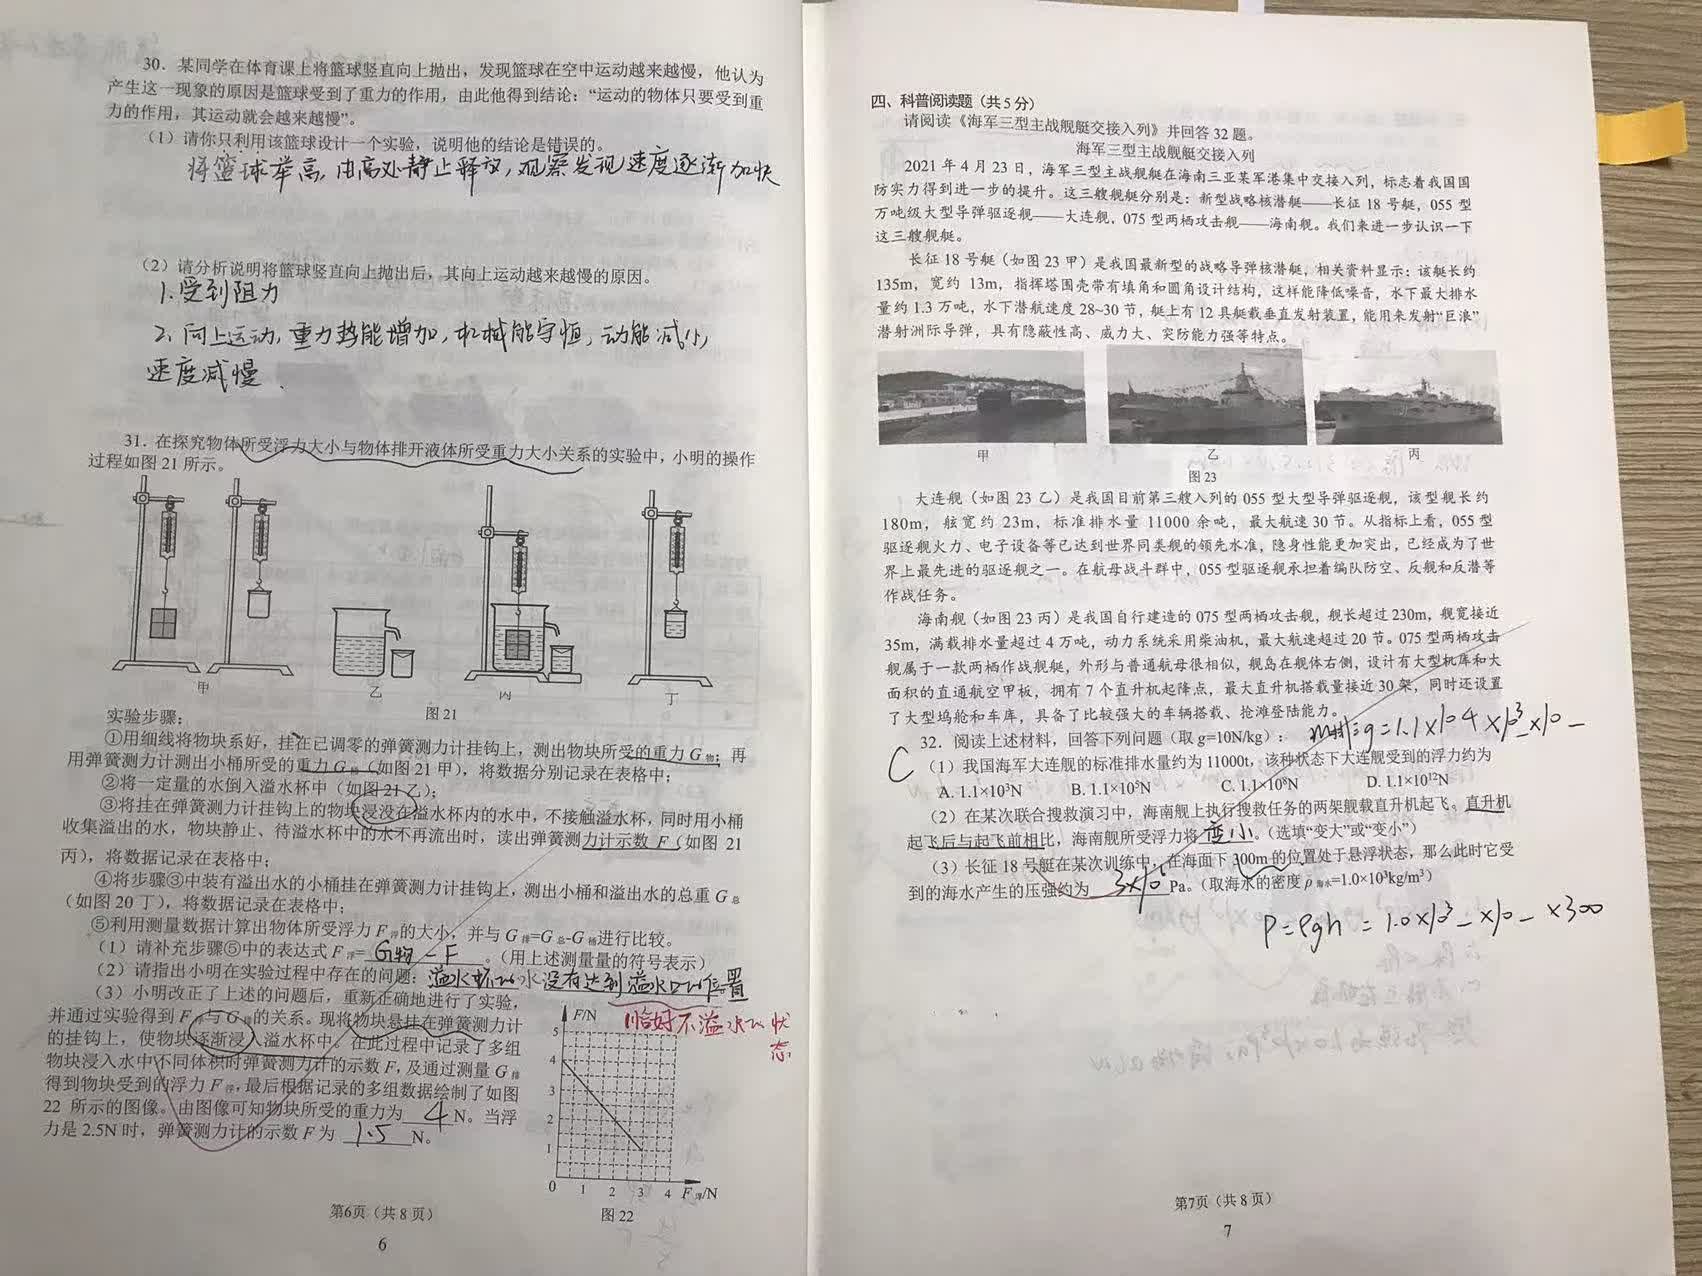 30．某同学在体育课上将篮球竖直向上抛出，发现篮球在空中运动越来越慢，他认为
产生这一现象的原因是篮球受到了重力的作用，由此他得到结论：“运动的物体只要受到重
力的作用，其运动就会越来越慢”。
（1）请你只利用该篮球设计一个实验，说明他的结论是错误的。
将篮球举高，由高处静止释放，观察发现速度逐渐加快
（2）请分析说明将篮球竖直向上抛出后，其向上运动越来越慢的原因。
1.受到阻力
2.向上运动，重力势能增加，机械能守恒，动能减小，
速度减慢．
31．在探究物体所受浮力大小与物体排开液体所受重力大小关系的实验中，小明的操作
过程如图21所示。
甲
乙
丙
丁
图21
实验步骤：
①用细线将物块系好，挂在已调零的弹簧测力计挂钩上，测出物块所受的重力G物；再
用弹簧测力计测出小桶所受的重力G桶（如图21甲），将数据分别记录在表格中；
②将一定量的水倒入溢水杯中（如图21乙）；
③将挂在弹簧测力计挂钩上的物块浸没在溢水杯内的水中，不接触溢水杯，同时用小桶
收集溢出的水，物块静止、待溢水杯中的水不再流出时，读出弹簧测力计示数F（如图21
丙），将数据记录在表格中；
④将步骤③中装有溢出水的小桶挂在弹簧测力计挂钩上，测出小桶和溢出水的总重G总
（如图20丁），将数据记录在表格中；
⑤利用测量数据计算出物体所受浮力F浮的大小，并与G排=G总-G桶进行比较。
（1）请补充步骤⑤中的表达式F浮= G物－F 。（用上述测量量的符号表示）
（2）请指出小明在实验过程中存在的问题：溢水杯的水没有达到溢水口的位置
恰好不溢水的状
态
（3）小明改正了上述的问题后，重新正确地进行了实验，
并通过实验得到F浮与G排的关系。现将物块悬挂在弹簧测力计
的挂钩上，使物块逐渐浸入溢水杯中，在此过程中记录了多组
物块浸入水中不同体积时弹簧测力计的示数F，及通过测量G排
得到物块受到的浮力F浮，最后根据记录的多组数据绘制了如图
22所示的图像。由图像可知物块所受的重力为 4 N。当浮
力是2.5N时，弹簧测力计的示数F为 1.5 N。
F/N
5
4
3
2
1
0 1 2 3 4 F浮/N
图22
第6页（共8页）
6
四、科普阅读题（共5分）
请阅读《海军三型主战舰艇交接入列》并回答32题。
海军三型主战舰艇交接入列
2021年4月23日，海军三型主战舰艇在海南三亚某军港集中交接入列，标志着我国国
防实力得到进一步的提升。这三艘舰艇分别是：新型战略核潜艇——长征18号艇，055型
万吨级大型导弹驱逐舰——大连舰，075型两栖攻击舰——海南舰。我们来进一步认识一下
这三艘舰艇。
长征18号艇（如图23甲）是我国最新型的战略导弹核潜艇，相关资料显示：该艇长约
135m，宽约13m，指挥塔围壳带有填角和圆角设计结构，这样能降低噪音，水下最大排水
量约1.3万吨，水下潜航速度28~30节，艇上有12具艇载垂直发射装置，能用来发射“巨浪”
潜射洲际导弹，具有隐蔽性高、威力大、突防能力强等特点。
甲
乙
丙
图23
大连舰（如图23乙）是我国目前第三艘入列的055型大型导弹驱逐舰，该型舰长约
180m，舷宽约23m，标准排水量11000余吨，最大航速30节。从指标上看，055型
驱逐舰火力、电子设备等已达到世界同类舰的领先水准，隐身性能更加突出，已经成为了世
界上最先进的驱逐舰之一。在航母战斗群中，055型驱逐舰承担着编队防空、反舰和反潜等
作战任务。
海南舰（如图23丙）是我国自行建造的075型两栖攻击舰，舰长超过230m，舰宽接近
35m，满载排水量超过4万吨，动力系统采用柴油机，最大航速超过20节。075型两栖攻击
舰属于一款两栖作战舰艇，外形与普通航母很相似，舰岛在舰体右侧，设计有大型机库和大
面积的直通航空甲板，拥有7个直升机起降点，最大直升机搭载量接近30架，同时还设置
了大型坞舱和车库，具备了比较强大的车辆搭载、抢滩登陆能力。
32．阅读上述材料，回答下列问题（取g=10N/kg）：
m排g=1.1×10 4 ×10³×10
C
（1）我国海军大连舰的标准排水量约为11000t，该种状态下大连舰受到的浮力约为
A. 1.1×10³N B. 1.1×10⁵N C. 1.1×10⁸N D. 1.1×10¹²N
（2）在某次联合搜救演习中，海南舰上执行搜救任务的两架舰载直升机起飞。直升机
起飞后与起飞前相比，海南舰所受浮力将 变小 。（选填“变大”或“变小”）
（3）长征18号艇在某次训练中，在海面下300m的位置处于悬浮状态，那么此时它受
到的海水产生的压强约为 3×10⁶ Pa。（取海水的密度ρ海水=1.0×10³kg/m³）
P=ρgh=1.0×10³×10×300
第7页（共8页）
7